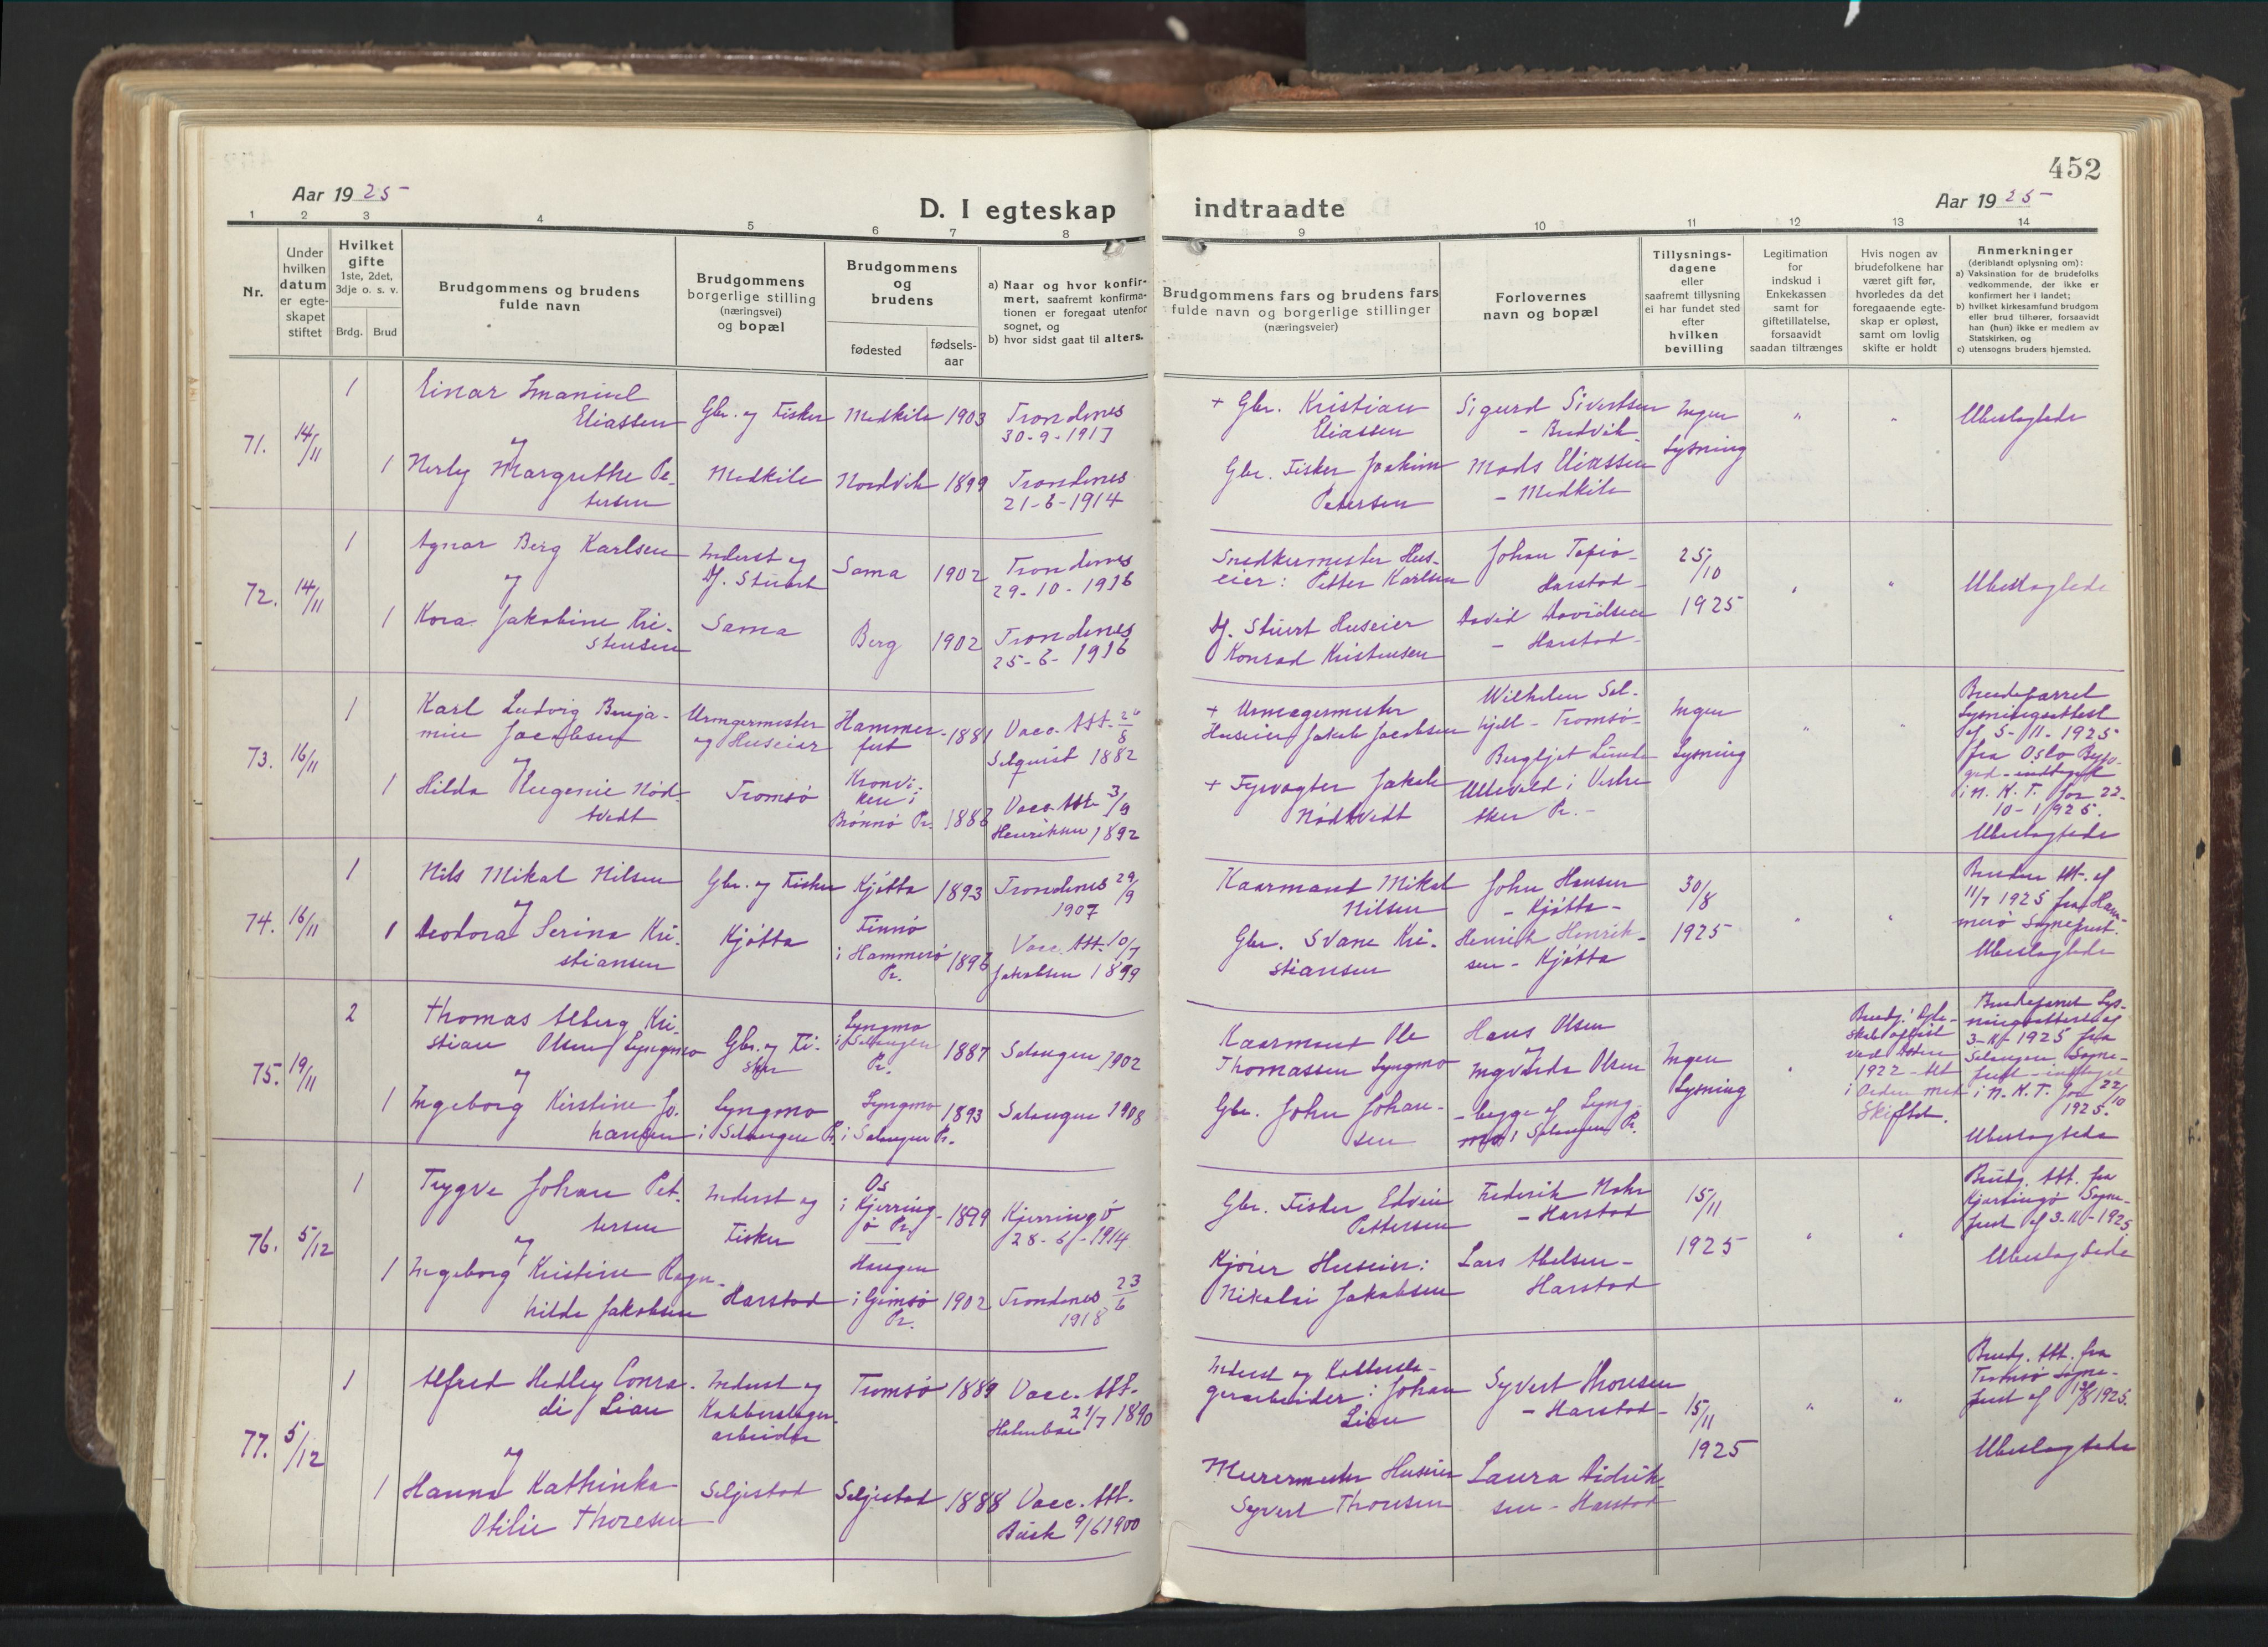 452
Aar 1925
Aar 1925
D. I egteskap indtraadte
1 2 3 4 5 6 7 8 9 10 11 12 13 14
Nr.
Under
hvilken
datum
er egte-
skapet
stiftet
Hvilket
gifte
1ste, 2det,
3dje o. s. v.
Brdg. Brud
Brudgommens og brudens
fulde navn
Brudgommens
borgerlige stilling
(næringsvei)
og bopæl
Brudgommens
og
brudens
fødested
fødsels-
aar
a) Naar og hvor konfir-
mert, saafremt konfirma-
tionen er foregaat utenfor
sognet, og
b) hvor sidst gaat til alters.
Brudgommens fars og brudens fars
fulde navn og borgerlige stillinger
(næringsveier)
Forlovernes
navn og bopæl
Tillysnings-
dagene
eller
saafremt tillysning
ei har fundet sted
efter
hvilken
bevilling
Legitimation
for
indskud i
Enkekassen
samt for
giftetillatelse,
forsaavidt
saadan tiltrænges
Hvis nogen av
brudefolkene har
været gift før,
hvorledes da det
foregaaende egte-
skap er opløst,
samt om lovlig
skifte er holdt
Anmerkninger
(deriblandt oplysning om):
a) Vaksination for de brudefolks
vedkommende, der ikke er
konfirmert her i landet;
b) hvilket kirkesamfund brudgom
eller brud tilhører, forsaavidt
han (hun) ikke er medlem av
Statskirken, og
c) utensogns bruders hjemsted.
71. 14/11
1 Einar Emaniul
Eliassen
og
1 Nerly Margrethe Pe-
tersen
Gbr. og Fisker
Medkila
Medkila 1903
Nordvik 1899
Trondenes
30-9-1917
Trondenes
21-6-1914
+ Gbr. Kristian
Eliassen
Gbr. Fisker Joakim
Petersen
Sigurd Sivertsen
- Budvik
Mads Eliassen
- Medkila
Ingen
Lysning
" "
Ubeslagtede
72. 14/11
1 Agnar Berg Karlsen
og
1 Kora Jakobine Kri-
stensen
Inderst og
Df. Stuert
Sama
Sama 1902
Berg 1902
Trondenes
29-10-1916
Trondenes
25-6-1916
Snedkermester Hus-
eier: Petter Karlsen
Df. Stuert Huseier
Konrad Kristensen
Johan Topio-
Harstad-
David Davidsen
- Harstad-
25/10
1925
" "
Ubeslagtede
73. 16/11
1 Karl Ludvig Benja-
min Jacobsen
og
1 Hilda Eugenie Nød-
tvedt
Urmagermester
og Huseier
Tromsö
Hammer-
fest 1881
i
Brönnö Pr. 1886
Vacc. Att. 26/8
Selquist 1882
Vacc. Att. 3/9
Henriksen 1892
+ Urmagermester
Huseier Jakob Jacobsen
+ Fyrvogter Jakob
Nödtvedt
Wilhelm Sol-
hjell - Tromsö-
Bergljot Lunde
Ullevold i Vestre
Aker Pr. -
Ingen
Lysning
"
Brudeparret
Lysningsattest
af 5-11-1925
fra Oslo Byfo-
ged - indtaget
i N. K. T. for 22-
10-1925.
Ubeslagtede
74. 16/11
1 Nils Mikal Nilsen
og
1 Teodora Serina Kri-
stiansen
Gbr. og Fisker
Kjøtta
Kjøtta 1893
Finnö
i Hammerö
Pr. 1896
Trondenes 29/9
1907
Vacc. Att. 10/7
Jakobsen 1899
Kaarmand Mikal
Nilsen
Gbr. Svane Kri-
stiansen
John Hansen
- Kjøtta-
Henrik Henrik-
sen - Kjøtta
30/8
1925
" "
Bruden Att. af
11/7 1925 fra Ham-
merö Sogneprest.
Ubeslagtede
75. 19/11
2 Thomas Alberg Kri-
stian Olsen Lyngmo
og
1 Ingeborg Kirstine Jo-
hansen
Gbr. og Fi-
sker
Lyngmo
i Salangen Pr.
Lyngmo
i Salangen
Pr. 1887
Lyngmo
i Salangen Pr. 1893
Salangen 1902
Salangen 1908
Kaarmand Ole
Thomassen Lyngmo
Gbr. John Johan-
sen
Hans Olsen
og
Ingvarda Olsen
- begge af Lyng-
mo i Salangen Pr.
Ingen
Lysning
"
Brudg. Egte-
skab opløst
ved Døden
1922 - Alt
i Orden med
Skiftet.
Brudeparret Lys-
ningsattest af
3-11-1925 fra
Salangen Sogne-
prest - indtaget
i N. K. T. for 22/10
1925.
Ubeslagtede
76. 5/12
1 Trygve Johan Pet-
tersen
og
1 Ingeborg Kristine Ragn-
hilda Jakobsen
Inderst og
Fisker
Harstad
Os
i Kjerring-
ö Pr. 1899
Haugen
i Gimsö
Pr. 1902
Kjerringö
28-6-1914
Trondenes 23/6
1918
Gbr. Fisker Edvin
Pettersen
Kjører Huseier:
Nikolai Jakobsen
Frederik Mohr
- Harstad
Lars Abelsen-
Harstad
15/11
1925
" "
Brudg. Att. fra
Kjærringø Sogne-
prest af 3-11-1925
Ubeslagtede
77. 5/12
1 Alfred Hedley Conra-
di Lian
og
1 Hanna Kathinka
Otilie Thoresen
Inderst og
Kobberslager-
arbeider
Seljestad
Tromsö 1889
Seljestad 1888
Vacc. Att.
Holmboe 21/7 1890
Vacc. Att.
Buck 9/6 1900
Inderst og Kobbersla-
gerarbeider: Johan
Lian
Murermester Huseier
Syvert Thoresen
Syvert Thoresen
- Harstad-
Laura Didrik-
sen - Harstad
15/11
1925
" "
Brudg. Att. fra
Tromsö Sogne-
prest af 13/8 1925.
Ubeslagtede